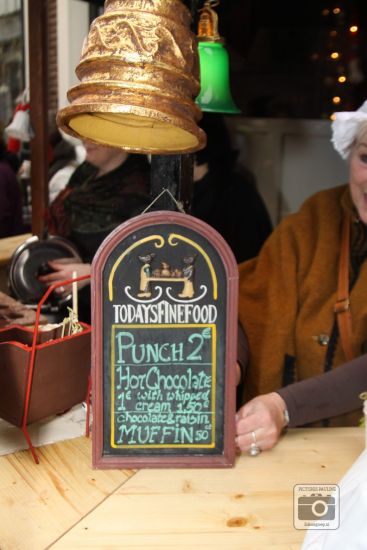 TODAYSFINEFOOD
PUNCH 2€
Hot Chocolate
1€ with whipped
cream 1,50€
chocolate & raisin
MUFFIN 50ct
PICTURES PAULINE